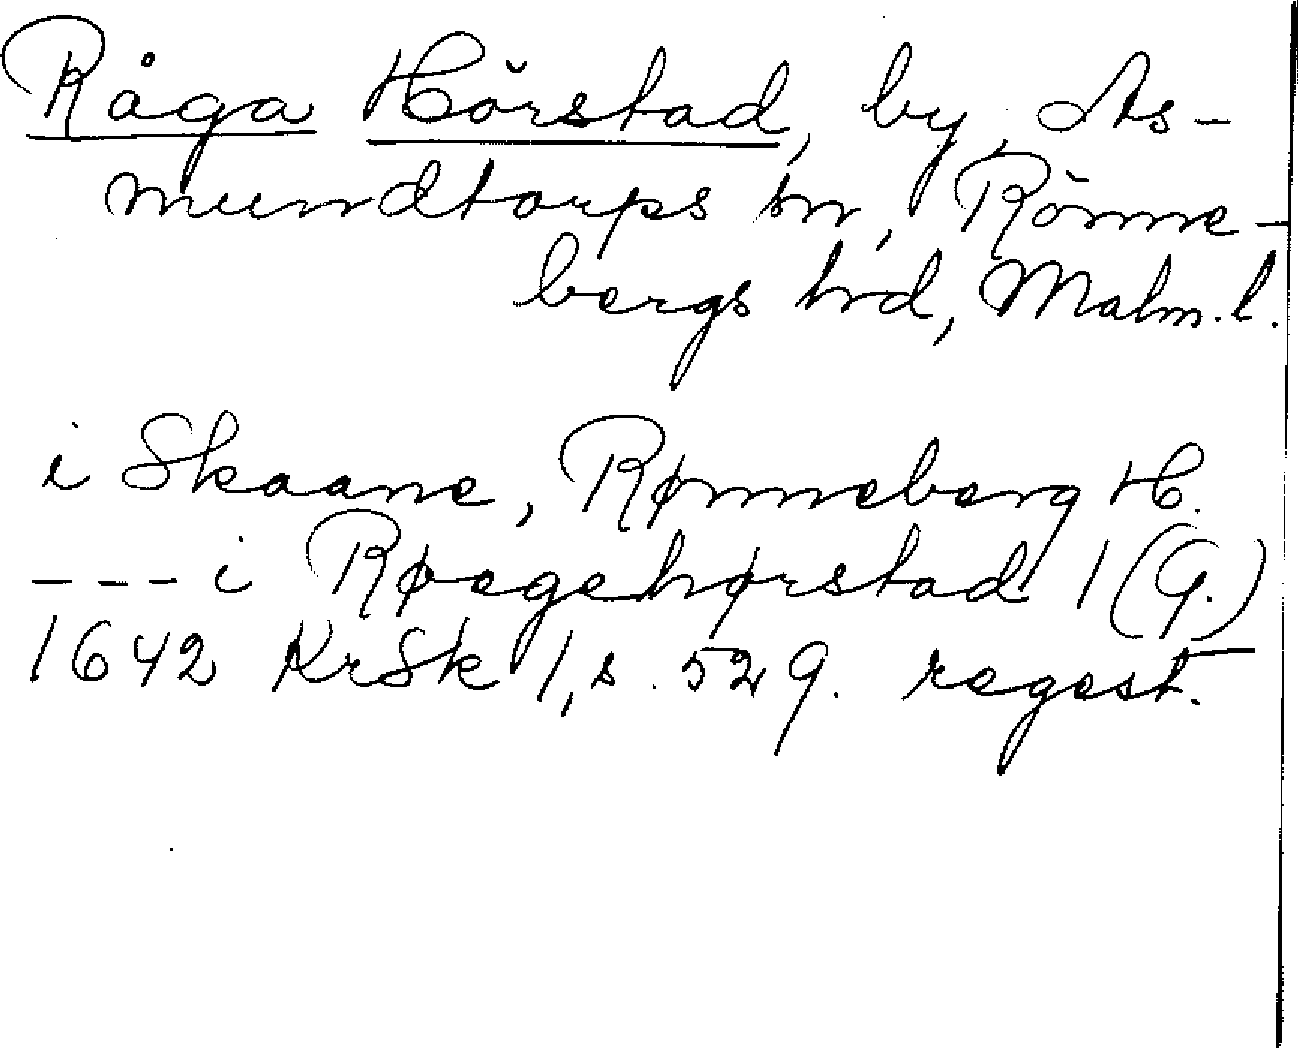 Råga Hörstad, by, As-
mundtorps sn, Rönne-
bergs hrd, Malm. l.
i Skaane, Rønneberg H.
--- i Røegehørstad 1 (G.)
1642 KrSk 1, s. 529. regest.